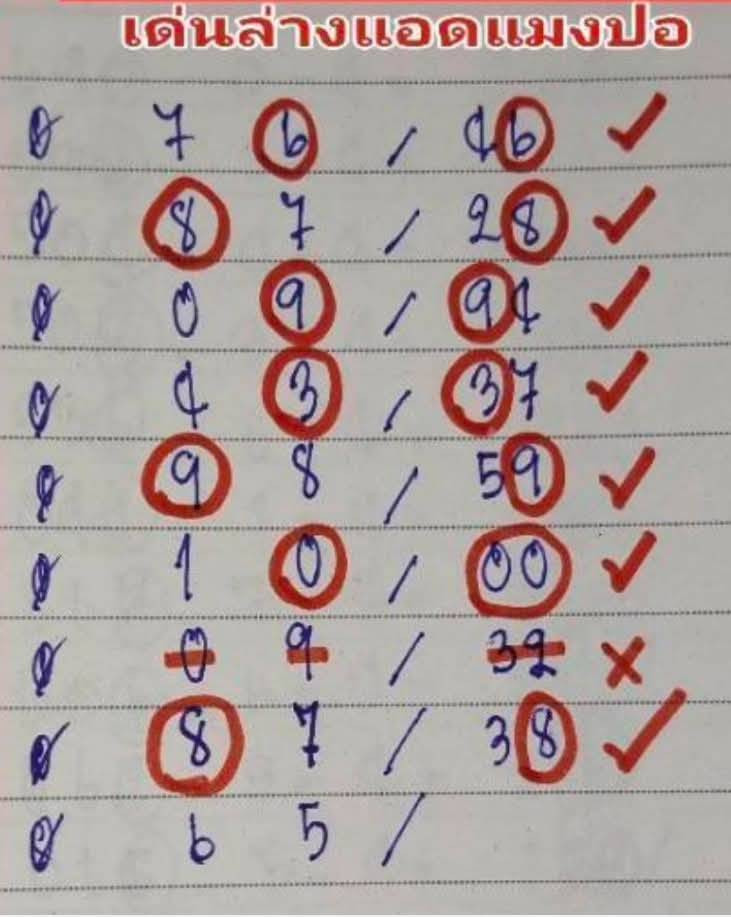 เด่นล่างแอดแมงปอ
7 6 / 46 ✓
8 7 / 28 ✓
0 9 / 94 ✓
4 3 / 37 ✓
9 8 / 59 ✓
1 0 / 00 ✓
0 9 / 32 ×
8 7 / 38 ✓
6 5 /